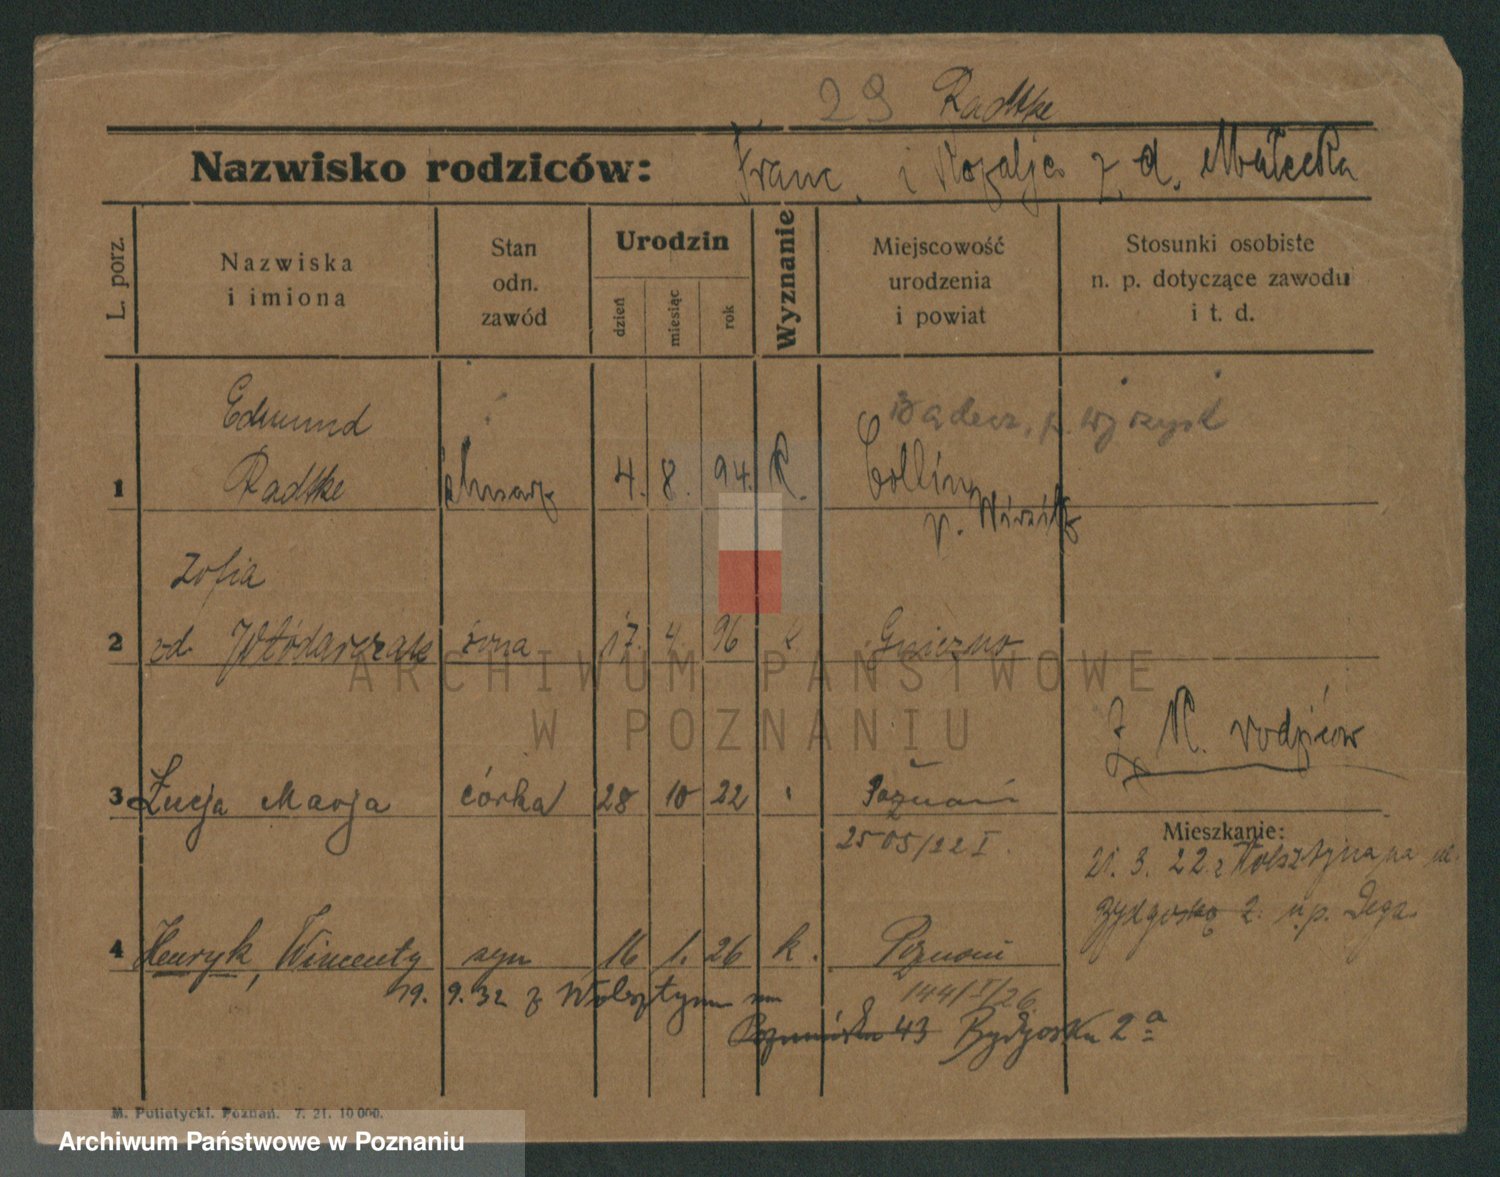 29 Radtke
Nazwisko rodziców: Franc. i Rozalja z d. Małecka
L. porz.
Nazwiska
i imiona
Stan
odn.
zawód
Urodzin
dzień
miesiąc
rok
Wyznanie
Miejscowość
urodzenia
i powiat
Stosunki osobiste
n. p. dotyczące zawodu
i t. d.
Edmund
p. Wyrzysk
1 Radtke ślusarz 4. 8. 94. R. Collin
p. Wirsitz
Zofia
2 zd. Włódarczak żona 17. 4. 96 Gniezno
ARCHIWUM PAŃSTWOWE
W POZNANIU
rodziców
3 Łucja Marja córka 28 10 22 Poznań
2505/22 I.
Mieszkanie:
21. 3. 22 z Wolsztyna na ul.
Bydgoską 2. u p. Dega
4 Henryk, Wincenty syn 16 1. 26 k. Poznań
144/I/26
19. 9. 32 z Wolsztyna na
Poznańska 43 Bydgoska 2a
M. Putiatycki. Poznań. 7. 21. 10 000.
Archiwum Państwowe w Poznaniu